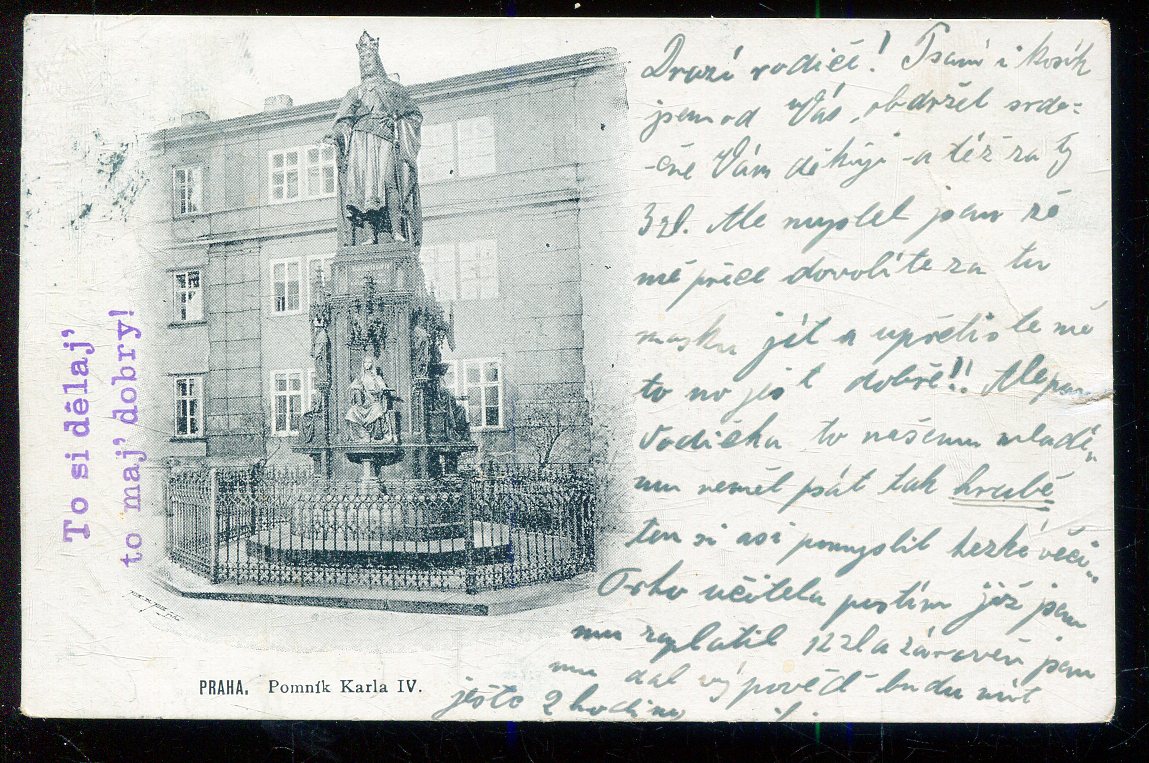 To si dělaj'
to maj' dobry!
PRAHA. Pomník Karla IV.
Drazí rodiče! Psaní i
jsem od Vás obdržel srde-
-čně Vám děkuji -a též za ty
3 zl. Ale myslel jsem že
mě přece dovolíte za tu
masku jít a upřeli jste mě
to no jest dobře!! Ale pan
Vodička to našemu mladé-
mu neměl psát tak hrubě
ten si asi pomyslil hezké věci
Toho učitela pustím již jsem
mu zaplatil 12 zl a zároveň jsem
mu dal výpověď budu mít
ješte 2 hodiny